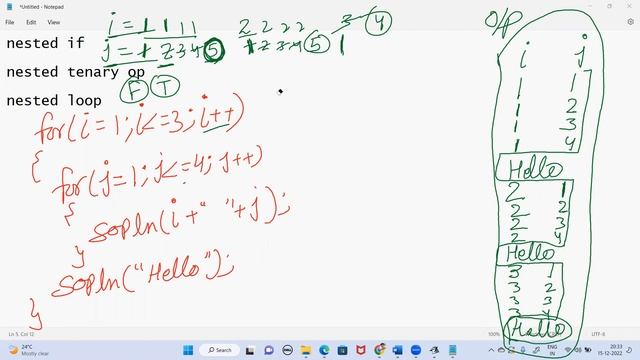 *Untitled - Notepad
File Edit View
i = 1 1 1 1 2 2 2 2 3 4
nested if
j = 1 2 3 4 5 1 2 3 4 5 1
nested tenary op
F T
nested loop
for(i=1; i<=3; i++)
{
for(j=1; j<=4; j++)
{
sopln(i+" "+j);
}
sopln("Hello");
}
O/P
i j
1 1
1 2
1 3
1 4
Hello
2 1
2 2
2 3
2 4
Hello
3 1
3 2
3 3
3 4
Hello
Ln 5, Col 12
100%
UTF-8
24°C
Mostly clear
Search
ENG
IN
20:33